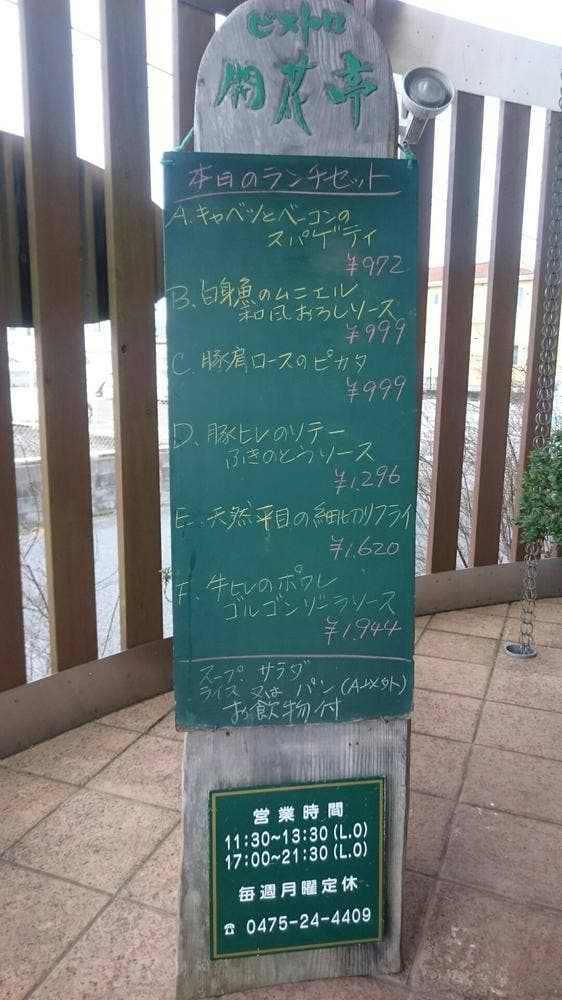 ビストロ
開花亭
本日のランチセット
A.キャベツとベーコンの
スパゲティ
¥972
B.白身魚のムニエル
和風おろしソース
¥999
C.豚肩ロースのピカタ
¥999
D.豚ヒレのソテー
ふきのとうソース
¥1,296
E.天然平目の細切りフライ
¥1,620
F.牛ヒレのポワレ
ゴルゴンゾーラソース
¥1,944
スープ サラダ
ライス 又は パン(A以外)
お飲物付
営業時間
11:30~13:30(L.O)
17:00~21:30(L.O)
毎週月曜定休
☎ 0475-24-4409